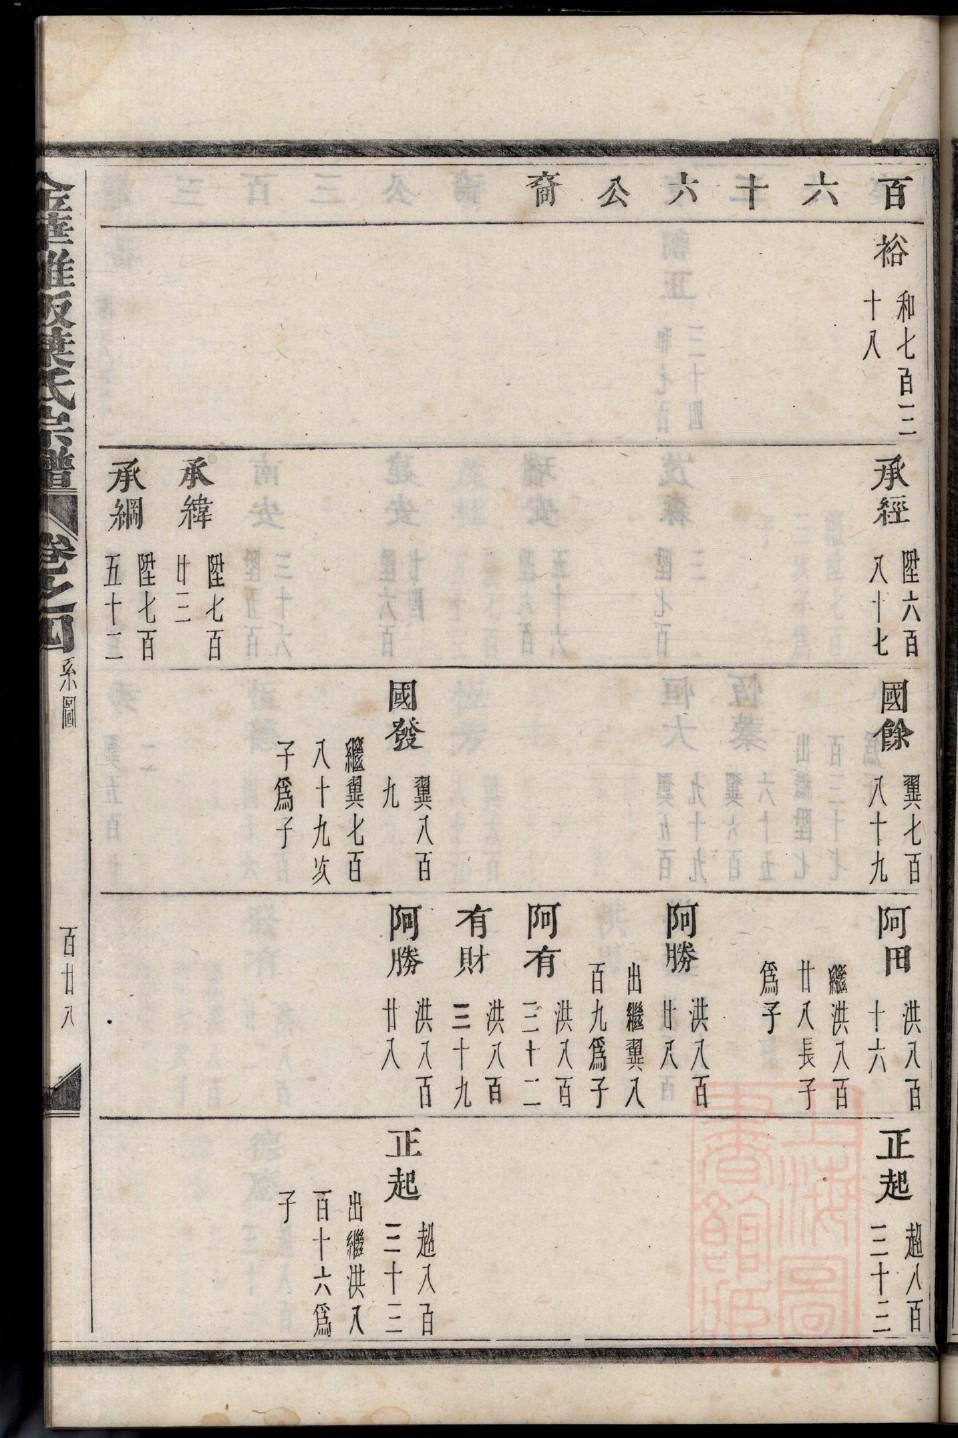 百六十六公裔
裕
和七百三
十八
承經
陞六百
八十七
承緯
陞七百
廿三
承綱
陞七百
五十二
國餘
翼七百
八十九
國發
翼八百
九
繼翼七百
八十九次
子爲子
阿田
洪八百
十六
繼洪八百
廿八長子
爲子
阿勝
洪八百
廿八
出繼翼八
百九爲子
阿有
洪八百
三十二
有財
洪八百
三十九
阿勝
洪八百
廿八
正起
趙八百
三十三
正起
趙八百
三十三
出繼洪八
百十六爲
子
金華雅畈葉氏宗譜
卷之四
系圖
百廿八
上海圖書館藏